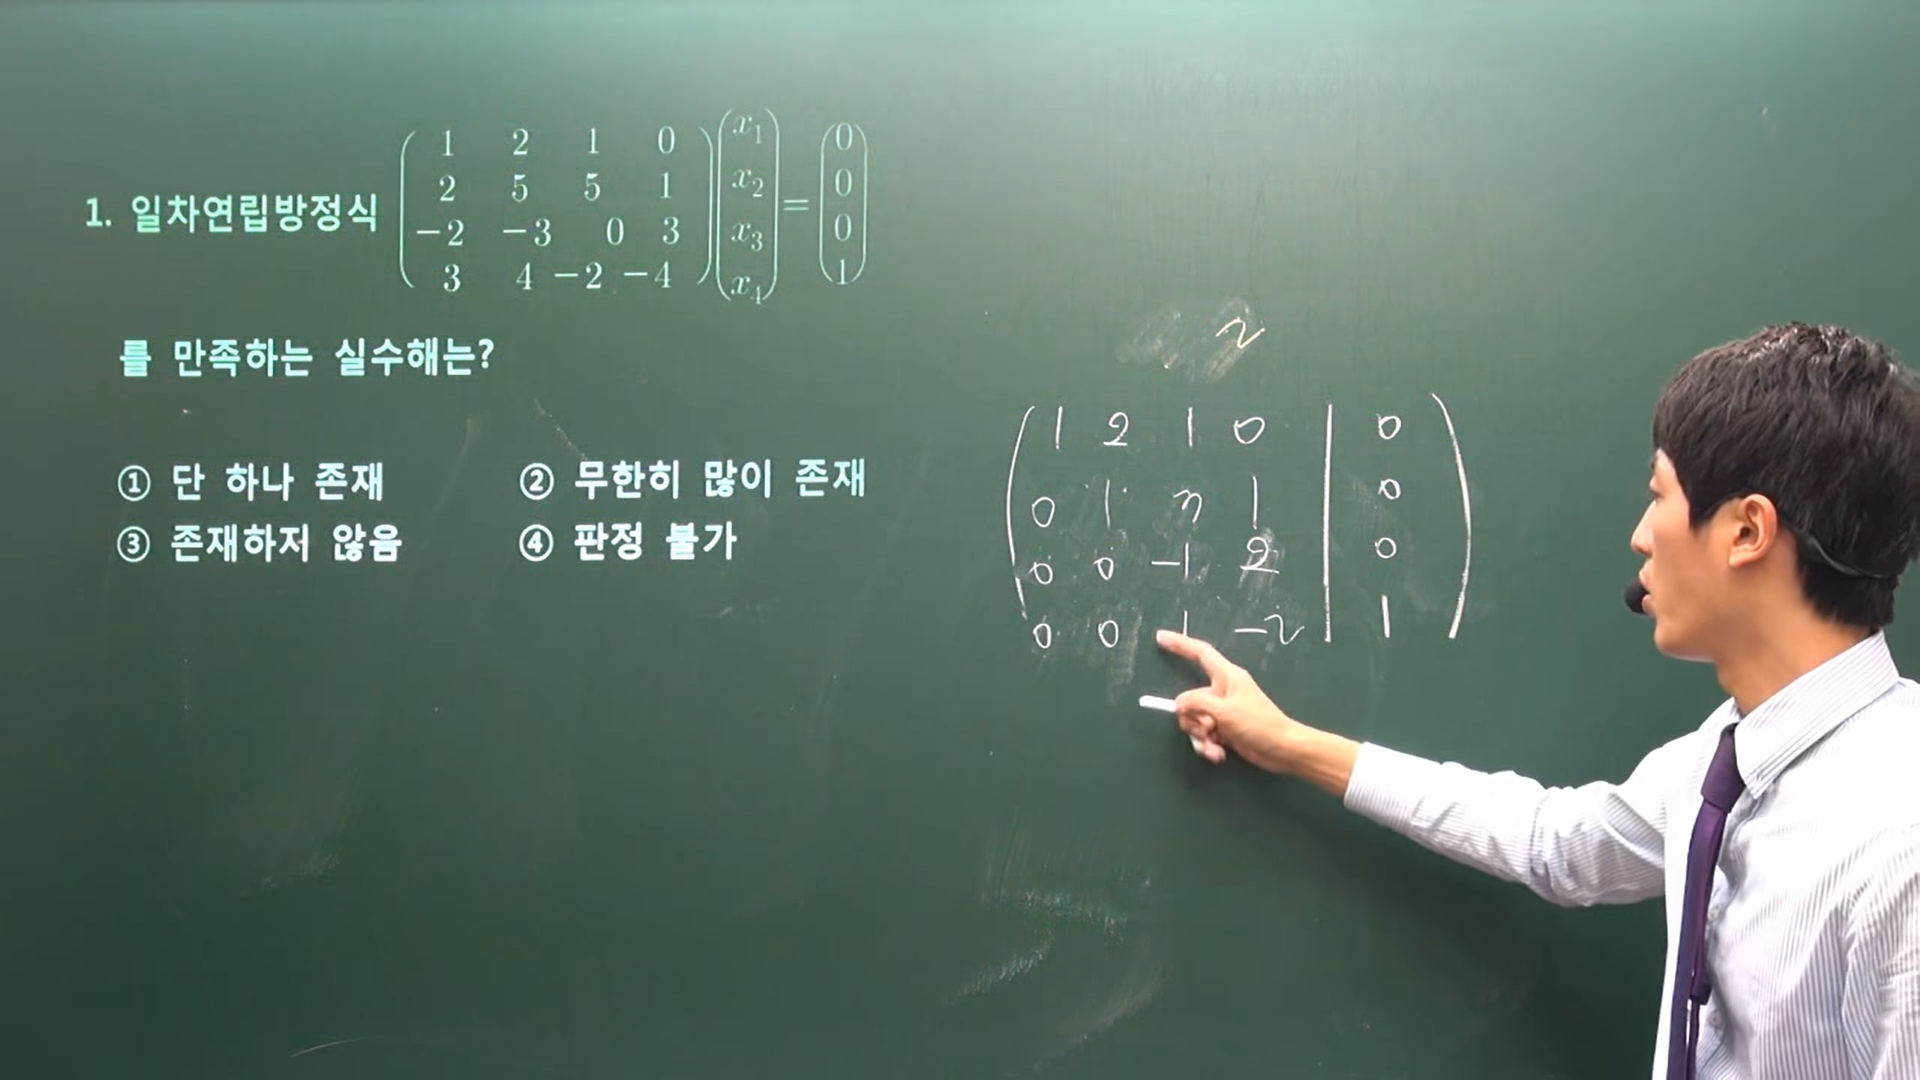 1. 일차연립방정식
1 2 1 0
2 5 5 1
-2 -3 0 3
3 4 -2 -4
x₁
x₂
x₃
x₄
=
0
0
0
1
를 만족하는 실수해는?
① 단 하나 존재 ② 무한히 많이 존재
③ 존재하저 않음 ④ 판정 불가
2
1 2 1 0 | 0
0 1 3 1 | 0
0 0 -1 2 | 0
0 0 1 -2 | 1